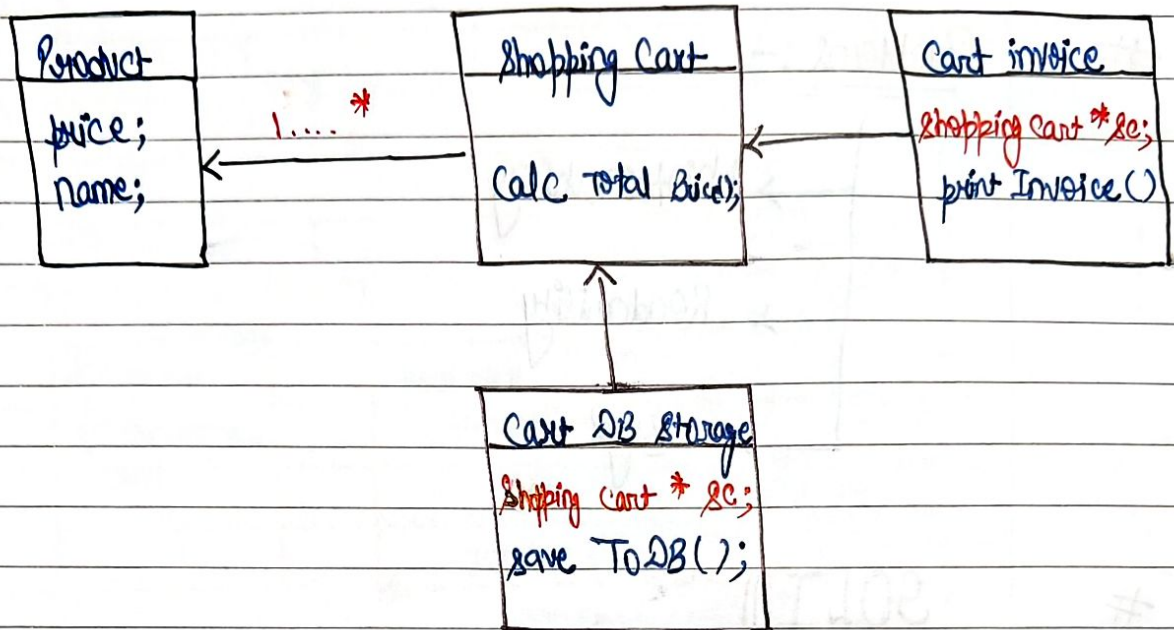 Product
price;
name;
1.... *
Shopping Cart
Calc Total Price();
Cart invoice
Shopping Cart *sc;
print Invoice()
Cart DB Storage
Shopping Cart * sc;
save ToDB();
#